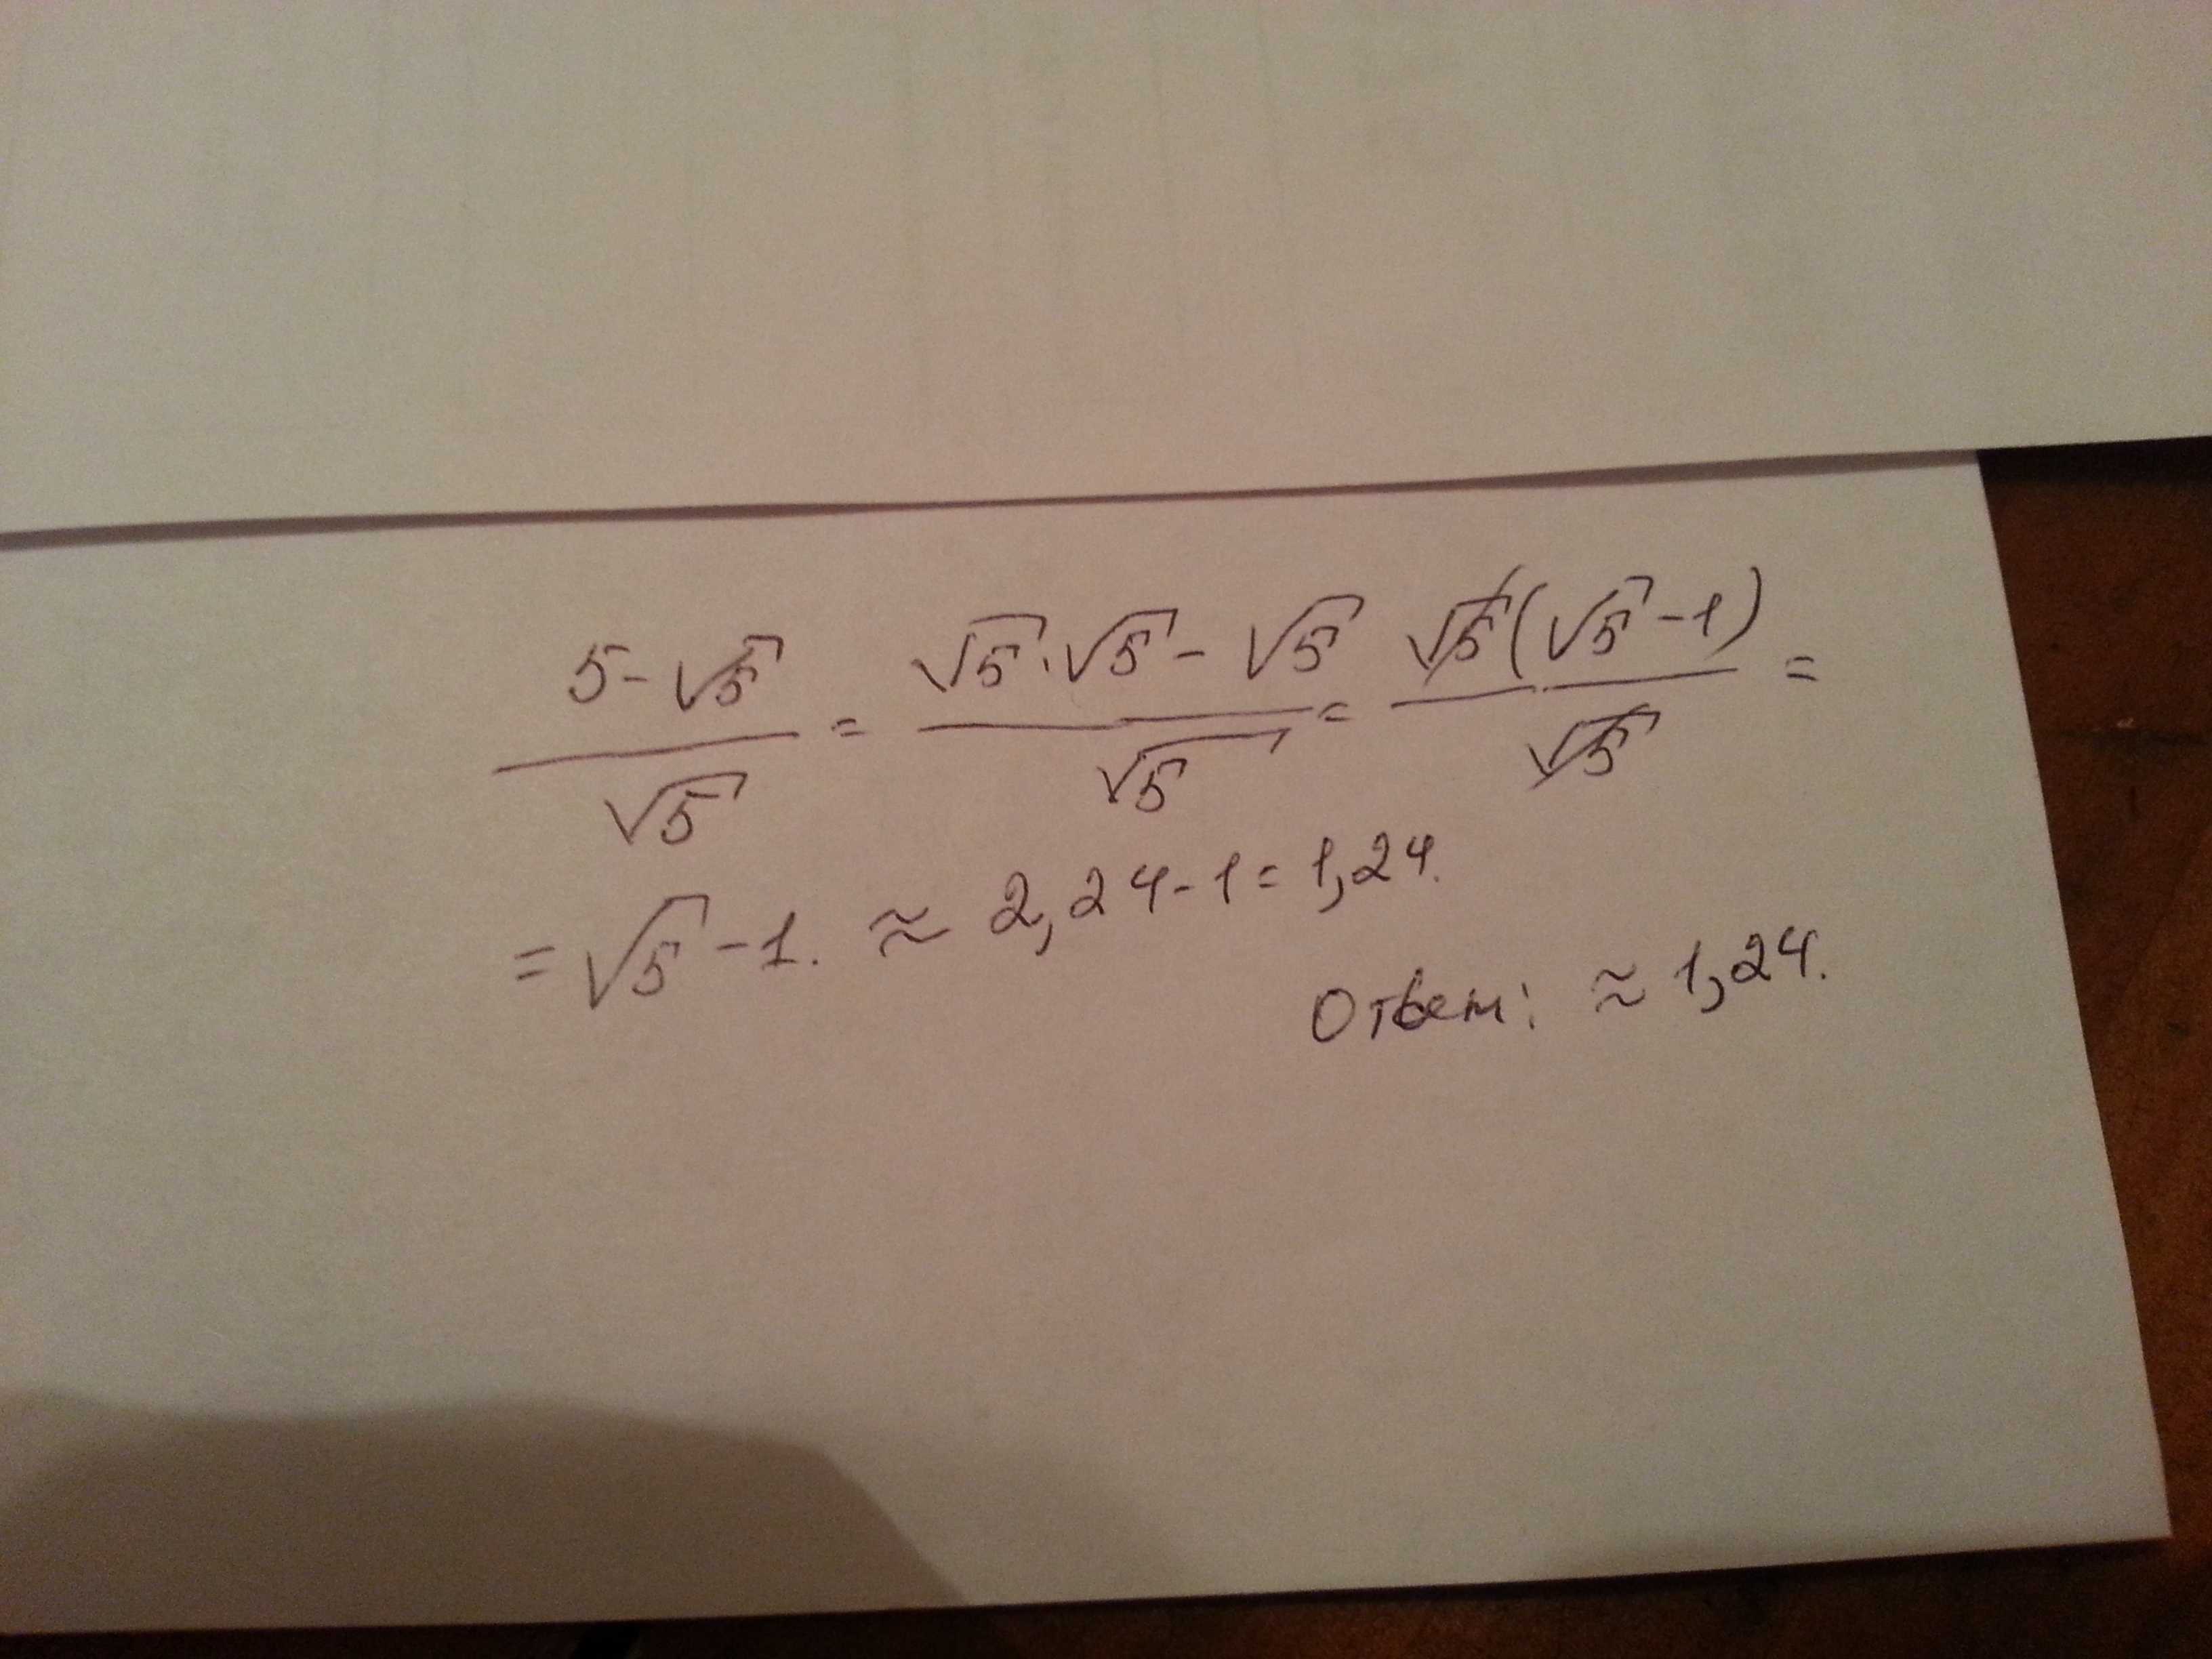 5-√5/√5 = √5·√5-√5/√5 = √5(√5-1)/√5 =
= √5-1. ≈ 2,24-1=1,24.
Ответ: ≈ 1,24.